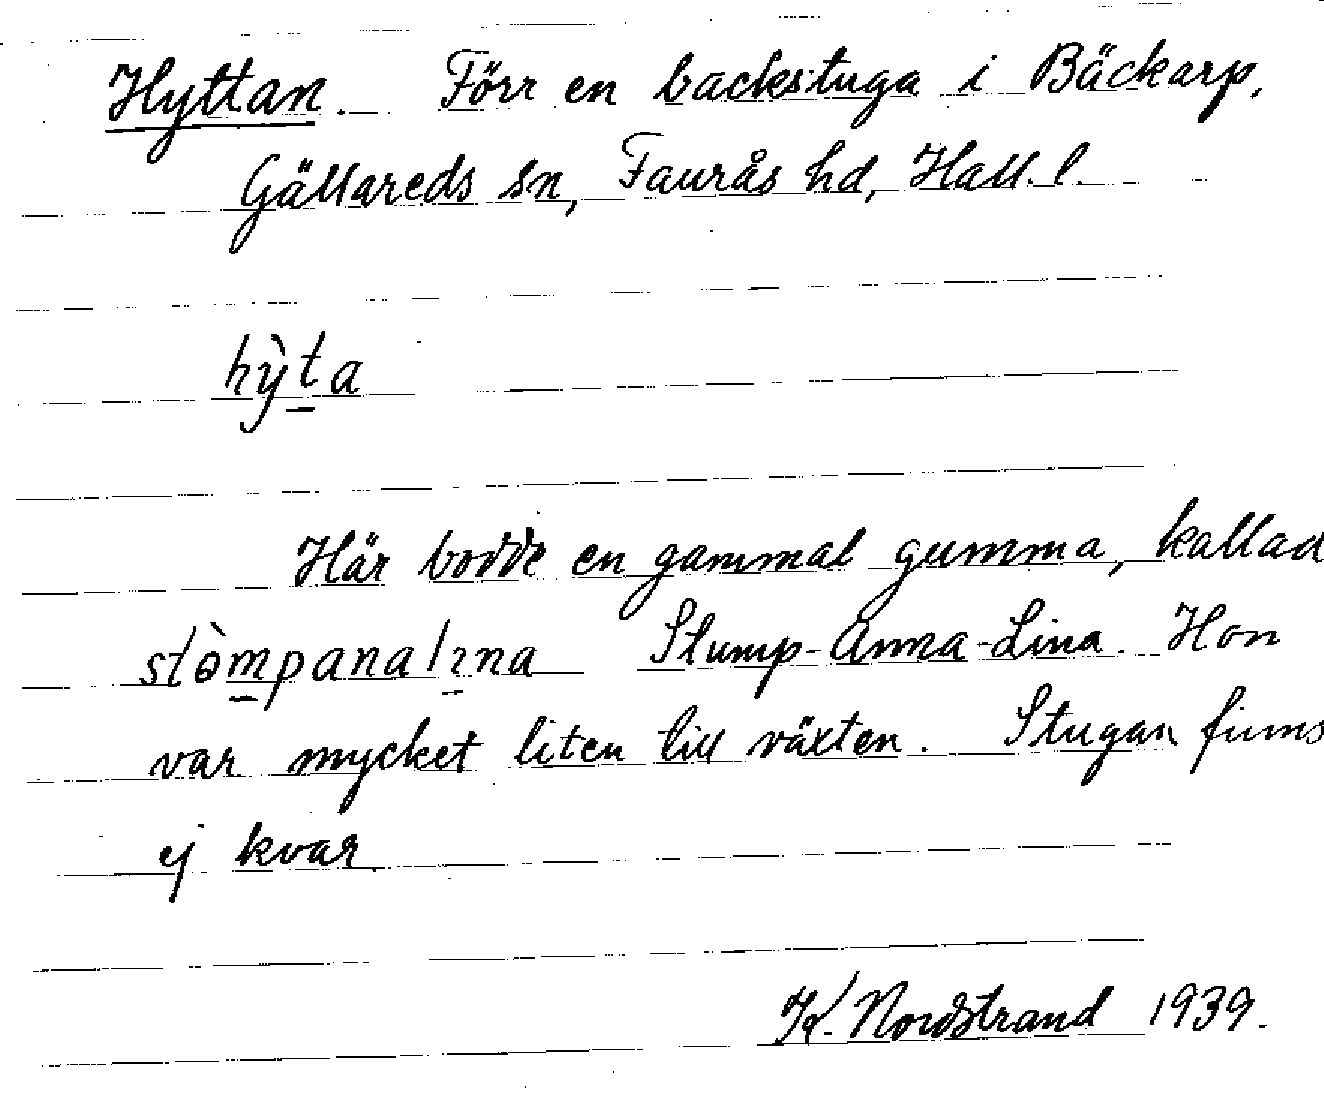 Hyttan. Förr en backstuga i Bäckarp,
Gällareds sn, Faurås hd, Hall. l.
hy̌̀ta
Här bodde en gammal gumma, kallad
stə̀mpanalına Stump-Anna-Lina. Hon
var mycket liten till växten. Stugan finns
ej kvar
K. Nordstrand 1939.